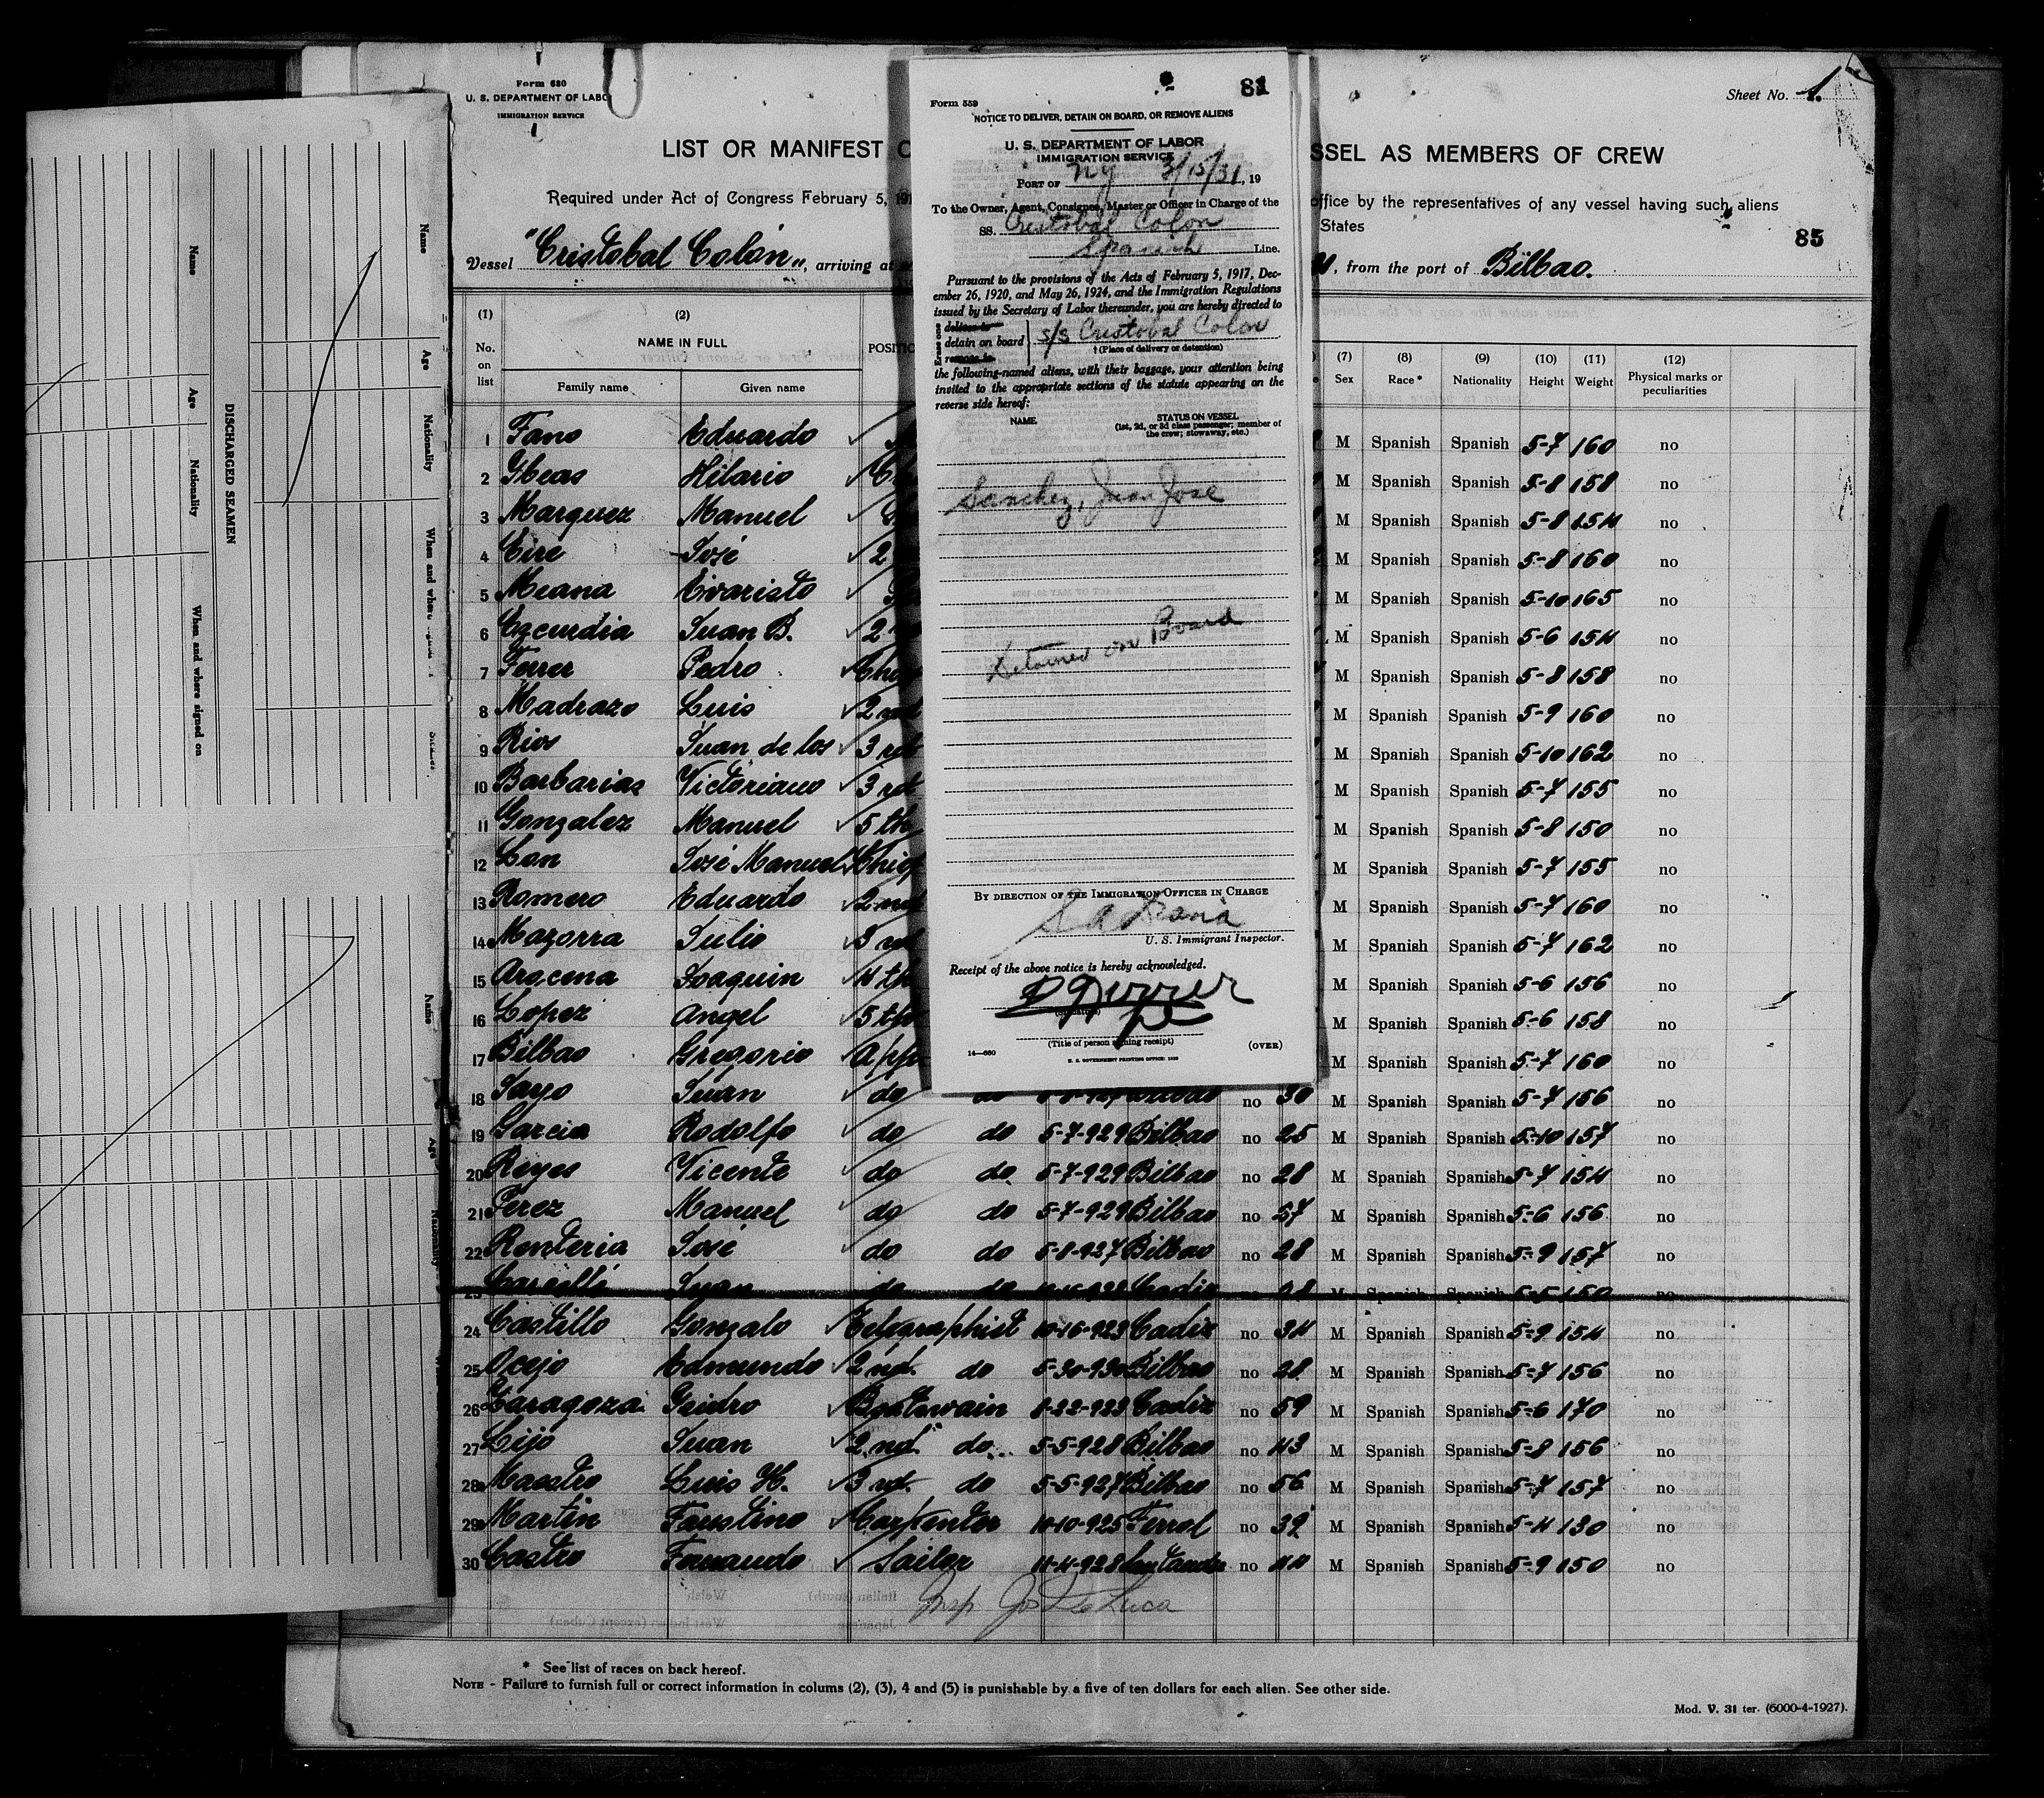 Form 680
U. S. DEPARTMENT OF LABO
IMMIGRATION SERVICE
LIST OR MANIFEST O
SSEL AS MEMBERS OF CREW
Sheet No. 1.
Required under Act of Congress February 5, 191
office by the representatives of any vessel having such aliens
States
85
Vessel "Cristobal Colón", arriving at
, from the port of Bilbao.
Form 559
81
NOTICE TO DELIVER, DETAIN ON BOARD, OR REMOVE ALIENS
U. S. DEPARTMENT OF LABOR
IMMIGRATION SERVICE
PORT OF NY 3/15/31, 19
To the Owner, Agent, Consignee, Master or Officer in Charge of the
SS. Cristobal Colon
Spanish Line.
Pursuant to the provisions of the Acts of February 5, 1917, Dec-
ember 26, 1920, and May 26, 1924, and the Immigration Regulations
issued by the Secretary of Labor thereunder, you are hereby directed to
Erase one
deliver to
detain on board
remove to
S/S Cristobal Colon
† (Place of delivery or detention)
the following-named aliens, with their baggage, your attention being
invited to the appropriate sections of the statute appearing on the
reverse side hereof:
NAME
STATUS ON VESSEL
(1st, 2d, or 3d class passenger; member of
the crew; stowaway, etc.)
Sanchez, Juan Jose
Detained on Board
BY DIRECTION OF THE IMMIGRATION OFFICER IN CHARGE
U. S. Immigrant Inspector.
Receipt of the above notice is hereby acknowledged.
(Title of person signing receipt)
14—660
U. S. GOVERNMENT PRINTING OFFICE: 1930
(OVER)
(1) (2) (7) (8) (9) (10) (11) (12)
No. on list
NAME IN FULL
Family name Given name
POSITIO
Sex Race* Nationality Height Weight Physical marks or peculiarities
1 Fano Eduardo M Spanish Spanish 5-7 160 no
2 Ybeas Hilario M Spanish Spanish 5-8 158 no
3 Marquez Manuel M Spanish Spanish 5-8 154 no
4 Eire José 2 M Spanish Spanish 5-8 160 no
5 Meana Evaristo M Spanish Spanish 5-10 165 no
6 Ezcurdia Juan B. 2 M Spanish Spanish 5-6 154 no
7 Ferrer Pedro M Spanish Spanish 5-8 158 no
8 Madrazo Luis 2nd M Spanish Spanish 5-9 160 no
9 Rios Juan de los 3rd M Spanish Spanish 5-10 162 no
10 Barbarias Victoriano 3rd M Spanish Spanish 5-7 155 no
11 Gonzalez Manuel 5th M Spanish Spanish 5-8 150 no
12 Lan José Manuel Chief M Spanish Spanish 5-7 155 no
13 Romero Eduardo 2nd M Spanish Spanish 5-7 160 no
14 Mazorra Julio 3rd M Spanish Spanish 5-7 162 no
15 Aracena Joaquin 4th M Spanish Spanish 5-6 156 no
16 Lopez Angel 5th M Spanish Spanish 5-6 158 no
17 Bilbao Gregorio App M Spanish Spanish 5-7 160 no
18 Sayo Juan do do Bilbao no 30 M Spanish Spanish 5-7 156 no
19 Garcia Rodolfo do do 5-7-929 Bilbao no 25 M Spanish Spanish 5-10 157 no
20 Reyes Vicente do do 5-7-929 Bilbao no 28 M Spanish Spanish 5-7 154 no
21 Perez Manuel do do 5-7-929 Bilbao no 27 M Spanish Spanish 5-6 156 no
22 Renteria José do do 5-8-927 Bilbao no 28 M Spanish Spanish 5-9 157 no
23 Juan do do Cadiz no 28 M Spanish Spanish 5-5 150 no
24 Castillo Gonzalo Telegraphist 10-16-923 Cadiz no 34 M Spanish Spanish 5-9 154 no
25 Ocejo Edmundo 2nd. do 5-30-930 Bilbao no 28 M Spanish Spanish 5-7 156 no
26 Zaragoza Isidro Boatswain 8-22-923 Cadiz no 59 M Spanish Spanish 5-6 170 no
27 Lijo Juan 2nd. do 5-5-928 Bilbao no 43 M Spanish Spanish 5-8 156 no
28 Maestro Luis H. 3rd. do 5-5-927 Bilbao no 56 M Spanish Spanish 5-7 157 no
29 Martin Faustino Carpenter 10-10-925 Ferrol no 39 M Spanish Spanish 5-4 130 no
30 Castro Fernando Sailor 11-4-928 Santander no 44 M Spanish Spanish 5-9 150 no
Insp Jos De Luca
* See list of races on back hereof.
NOTE - Failure to furnish full or correct information in colums (2), (3), 4 and (5) is punishable by a five of ten dollars for each alien. See other side.
Mod. V. 31 ter. (6000-4-1927).
DISCHARGED SEAMEN
Name Age Nationality When and where signed on
Name Age Nationality When and where
Name Age Nationality